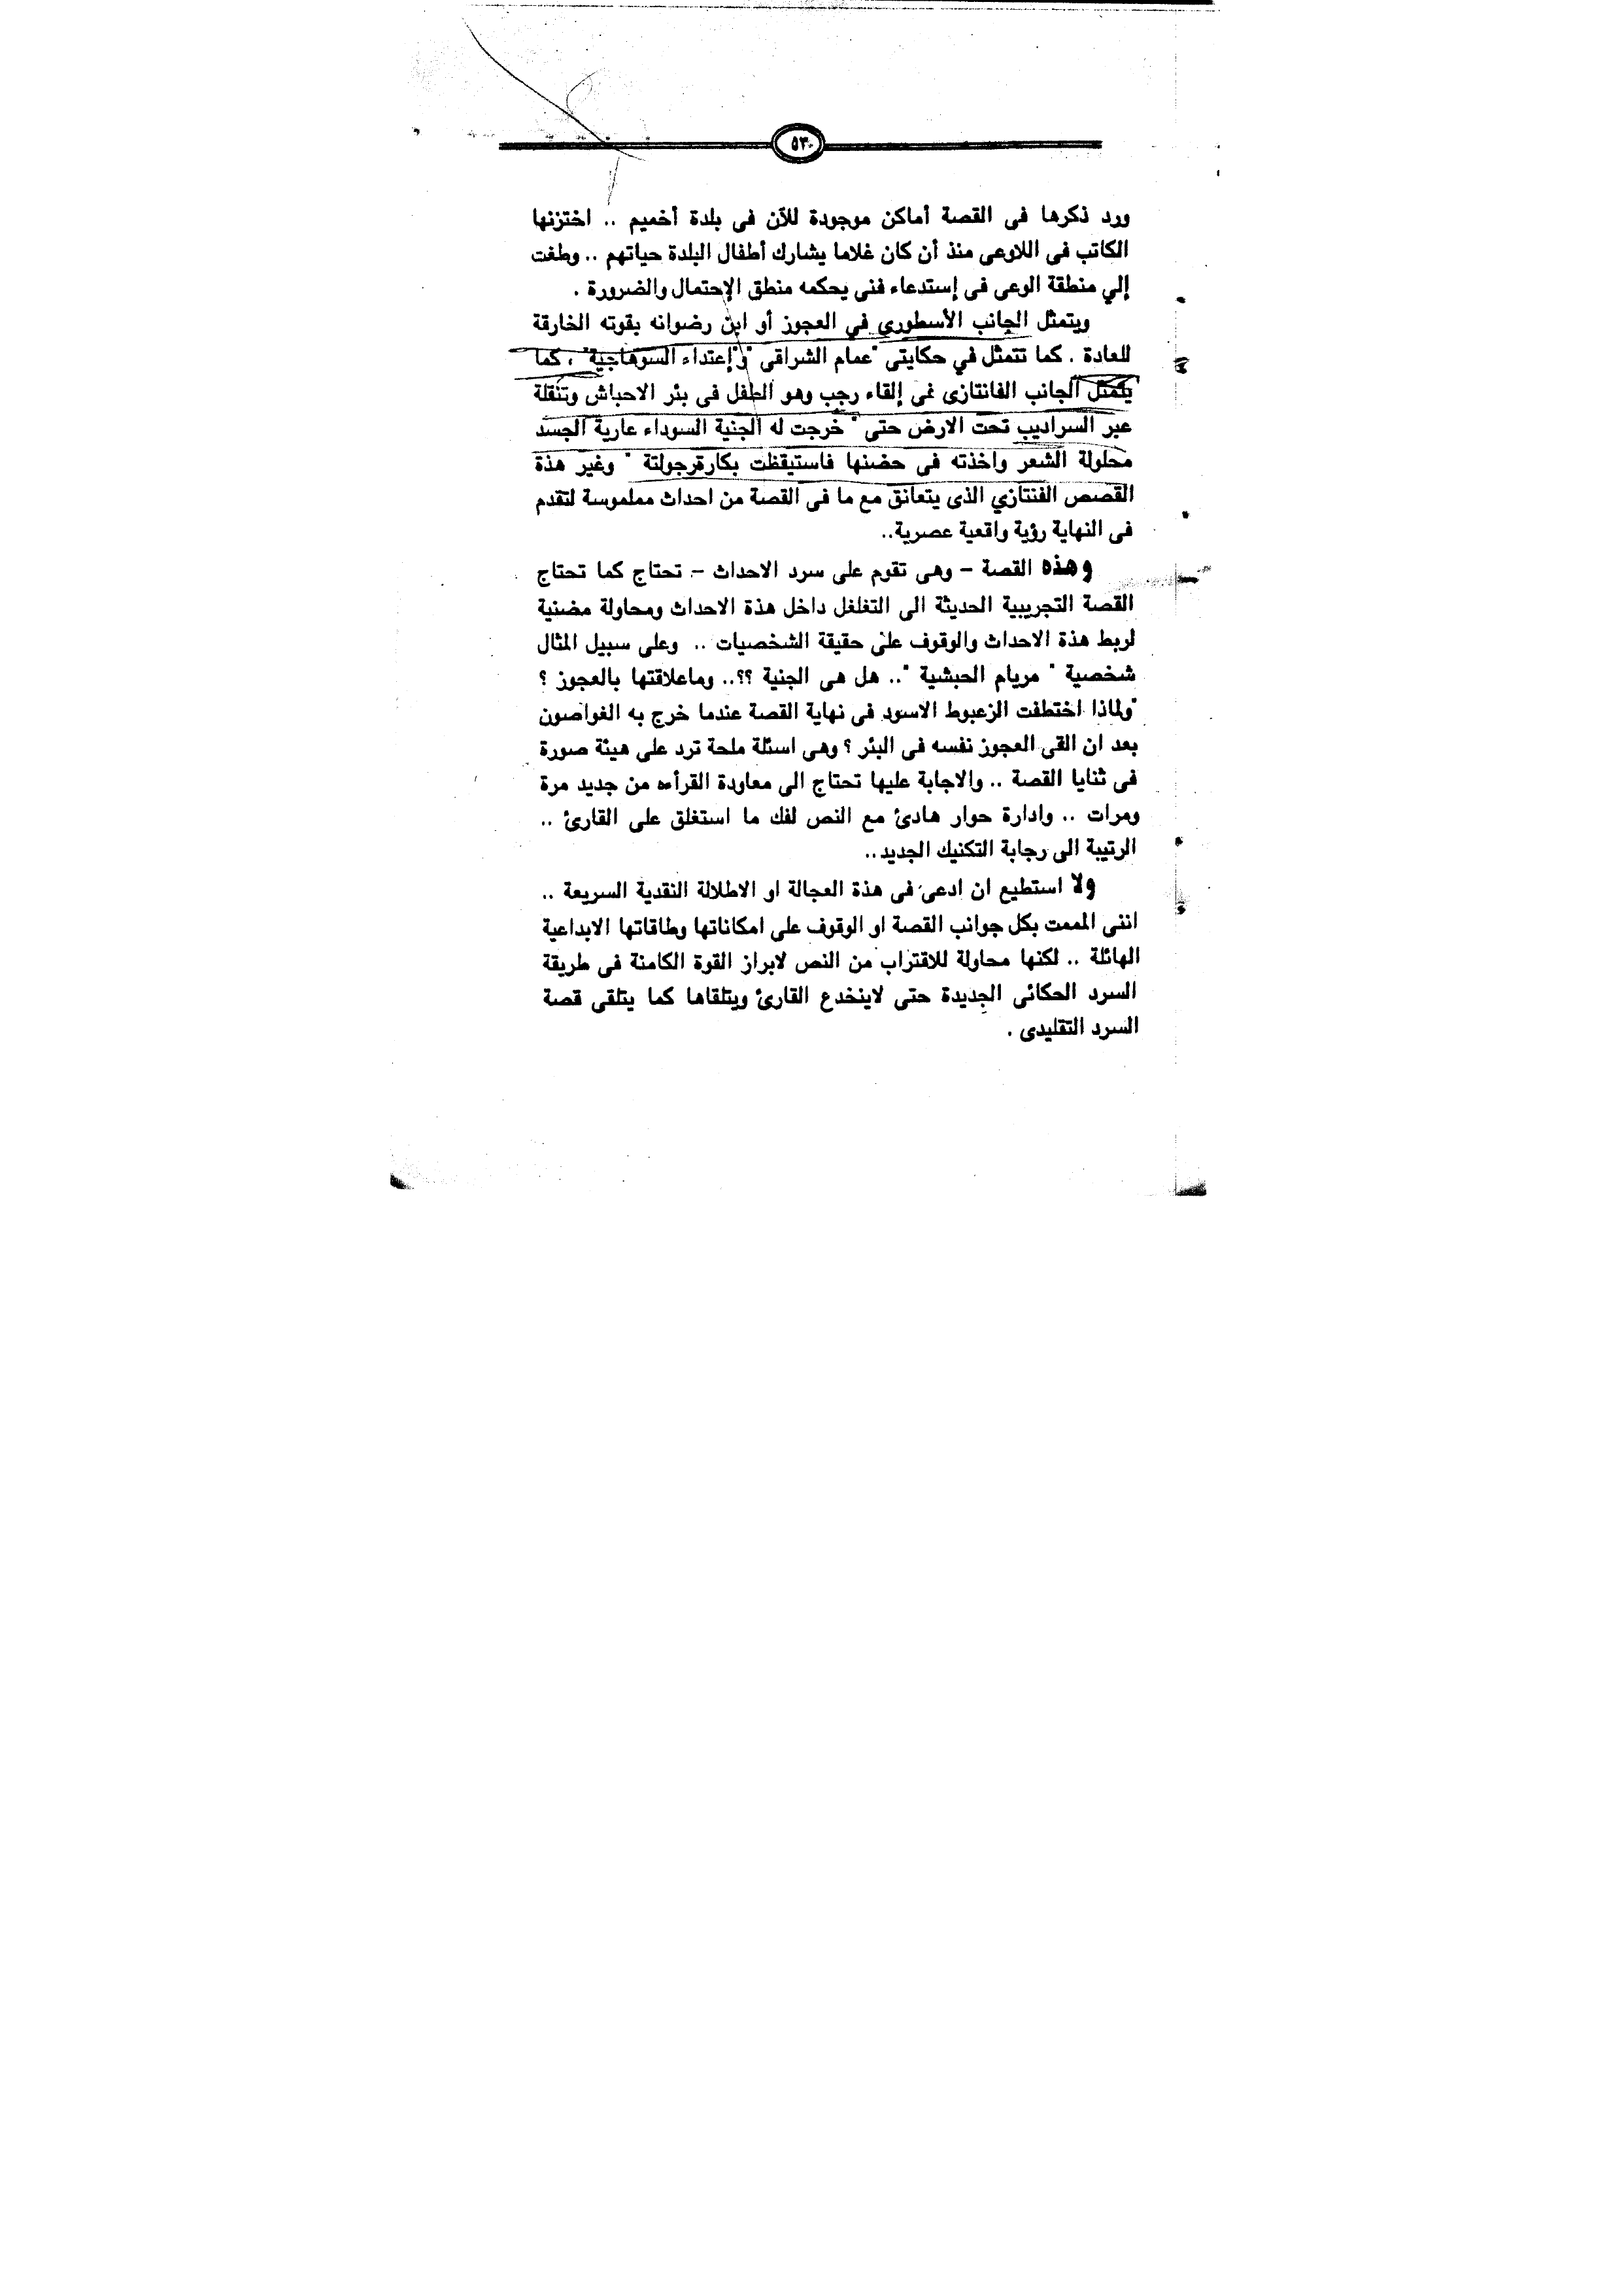 ٥٣
ورد ذكرها فى القصة أماكن موجودة للآن فى بلدة أخميم .. اختزنها
الكاتب فى اللاوعى منذ أن كان غلاما يشارك أطفال البلدة حياتهم .. وطفت
إلي منطقة الوعى فى إستدعاء فنى يحكمه منطق الإحتمال والضرورة .
ويتمثل الجانب الأسطوري في العجوز أو ابن رضوانه بقوته الخارقة
للعادة . كما تتمثل في حكايتى "عمام الشراقى" و"إعتداء السوهاجية" ، كما
يتمثل الجانب الفانتازى فى إلقاء رجب وهو الطفل فى بئر الاحباش وتنقلة
عبر السراديب تحت الارض حتى " خرجت له الجنية السوداء عارية الجسد
محلولة الشعر واخذته فى حضنها فاستيقظت بكارةرجولتة " وغير هذة
القصص الفنتازي الذى يتعانق مع ما فى القصة من احداث مملموسة لتقدم
فى النهاية رؤية واقعية عصرية..
وهذه القصة – وهى تقوم على سرد الاحداث – تحتاج كما تحتاج
القصة التجريبية الحديثة الى التغلغل داخل هذة الاحداث ومحاولة مضنية
لربط هذة الاحداث والوقوف على حقيقة الشخصيات .. وعلى سبيل المثال
شخصية " مريام الحبشية ".. هل هى الجنية ؟؟.. وماعلاقتها بالعجوز ؟
"ولماذا اختطفت الزعبوط الاسود فى نهاية القصة عندما خرج به الغواصون
بعد ان القى العجوز نفسه فى البئر ؟ وهى اسئلة ملحة ترد على هيئة صورة
فى ثنايا القصة .. والاجابة عليها تحتاج الى معاودة القرأءه من جديد مرة
ومرات .. وادارة حوار هادئ مع النص لفك ما استغلق على القارئ ..
الرتيبة الى رجابة التكنيك الجديد..
ولا استطيع ان ادعى فى هذة العجالة او الاطلالة النقدية السريعة ..
اننى الممت بكل جوانب القصة او الوقوف على امكاناتها وطاقاتها الابداعية
الهائلة .. لكنها محاولة للاقتراب من النص لابراز القوة الكامنة فى طريقة
السرد الحكائى الجديدة حتى لاينخدع القارئ ويتلقاها كما يتلقى قصة
السرد التقليدى .